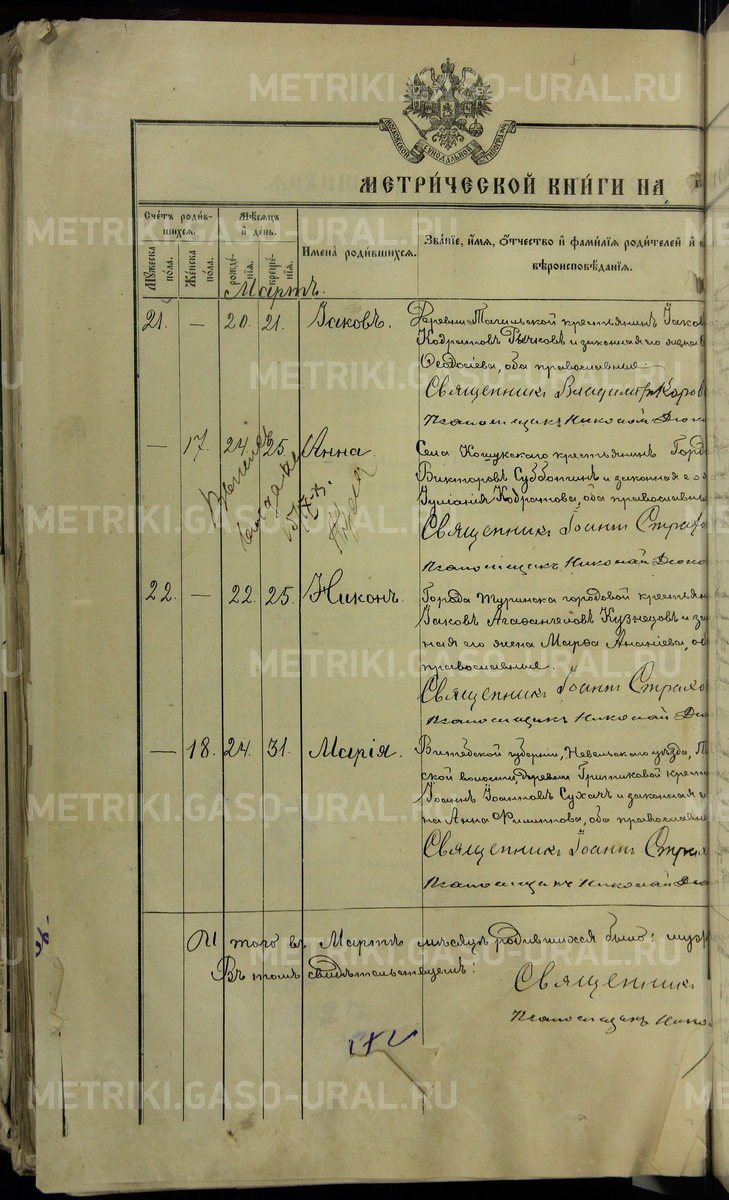 METRIKI.GASO-URAL.RU
МОСКОВСКОЙ СѴНОДАЛЬНОЙ ТИПОГРАФІИ
МЕТРИ́ЧЕСКОЙ КНИ́ГИ НА
Сче́тъ роди́в-
шихся.
Мѣ́сяцъ
и҆ де́нь.
Му́жеска по́ла.
Же́нска по́ла.
рожде́нія.
креще́нія.
И҆мена̀ роди́вшихся.
Зва́нїе, и҆́мя, ѻ҆́тчество и҆ фами́лїя роди́телей и҆
вѣроисповѣ́данїя.
Мартъ.
21. — 20. 21. Іаковъ. Деревни Тагильской крестьянинъ Іаков
Кодратовъ Рычковъ и законная его жена
Ѳеодосіева, оба православные
Священникъ Владимиръ Коров
Псаломщикъ Николай
— 17. 24. 25. Анна. Села Кошукскаго крестьянинъ
Викторовъ Субботинъ и законная его
Іуліанія Кодратова, оба православны
Священникъ Іоаннъ Страхо
Псаломщикъ Николай
22. — 22. 25. Никонъ. Города Туринска городовой крестьян
Іаковъ Агафангеловъ Кузнецовъ и за
ная его жена Марѳа Ананіева, о
православные.
Священникъ Іоаннъ Страхо
Псаломщикъ Николай
— 18. 24. 31. Марія. Витебской губерніи, Невельскаго уѣзда,
ской волости, деревни Гришиковой крест
Іоаннъ Іоанновъ Сухачъ и законная
на Анна Филиппова, оба православны
Священникъ Іоаннъ Страх
Псаломщикъ Николай
Итого въ Мартѣ мѣсяцѣ родившихся было: муж
Въ томъ свидѣтельствуемъ:
Священникъ
Псаломщикъ Нико